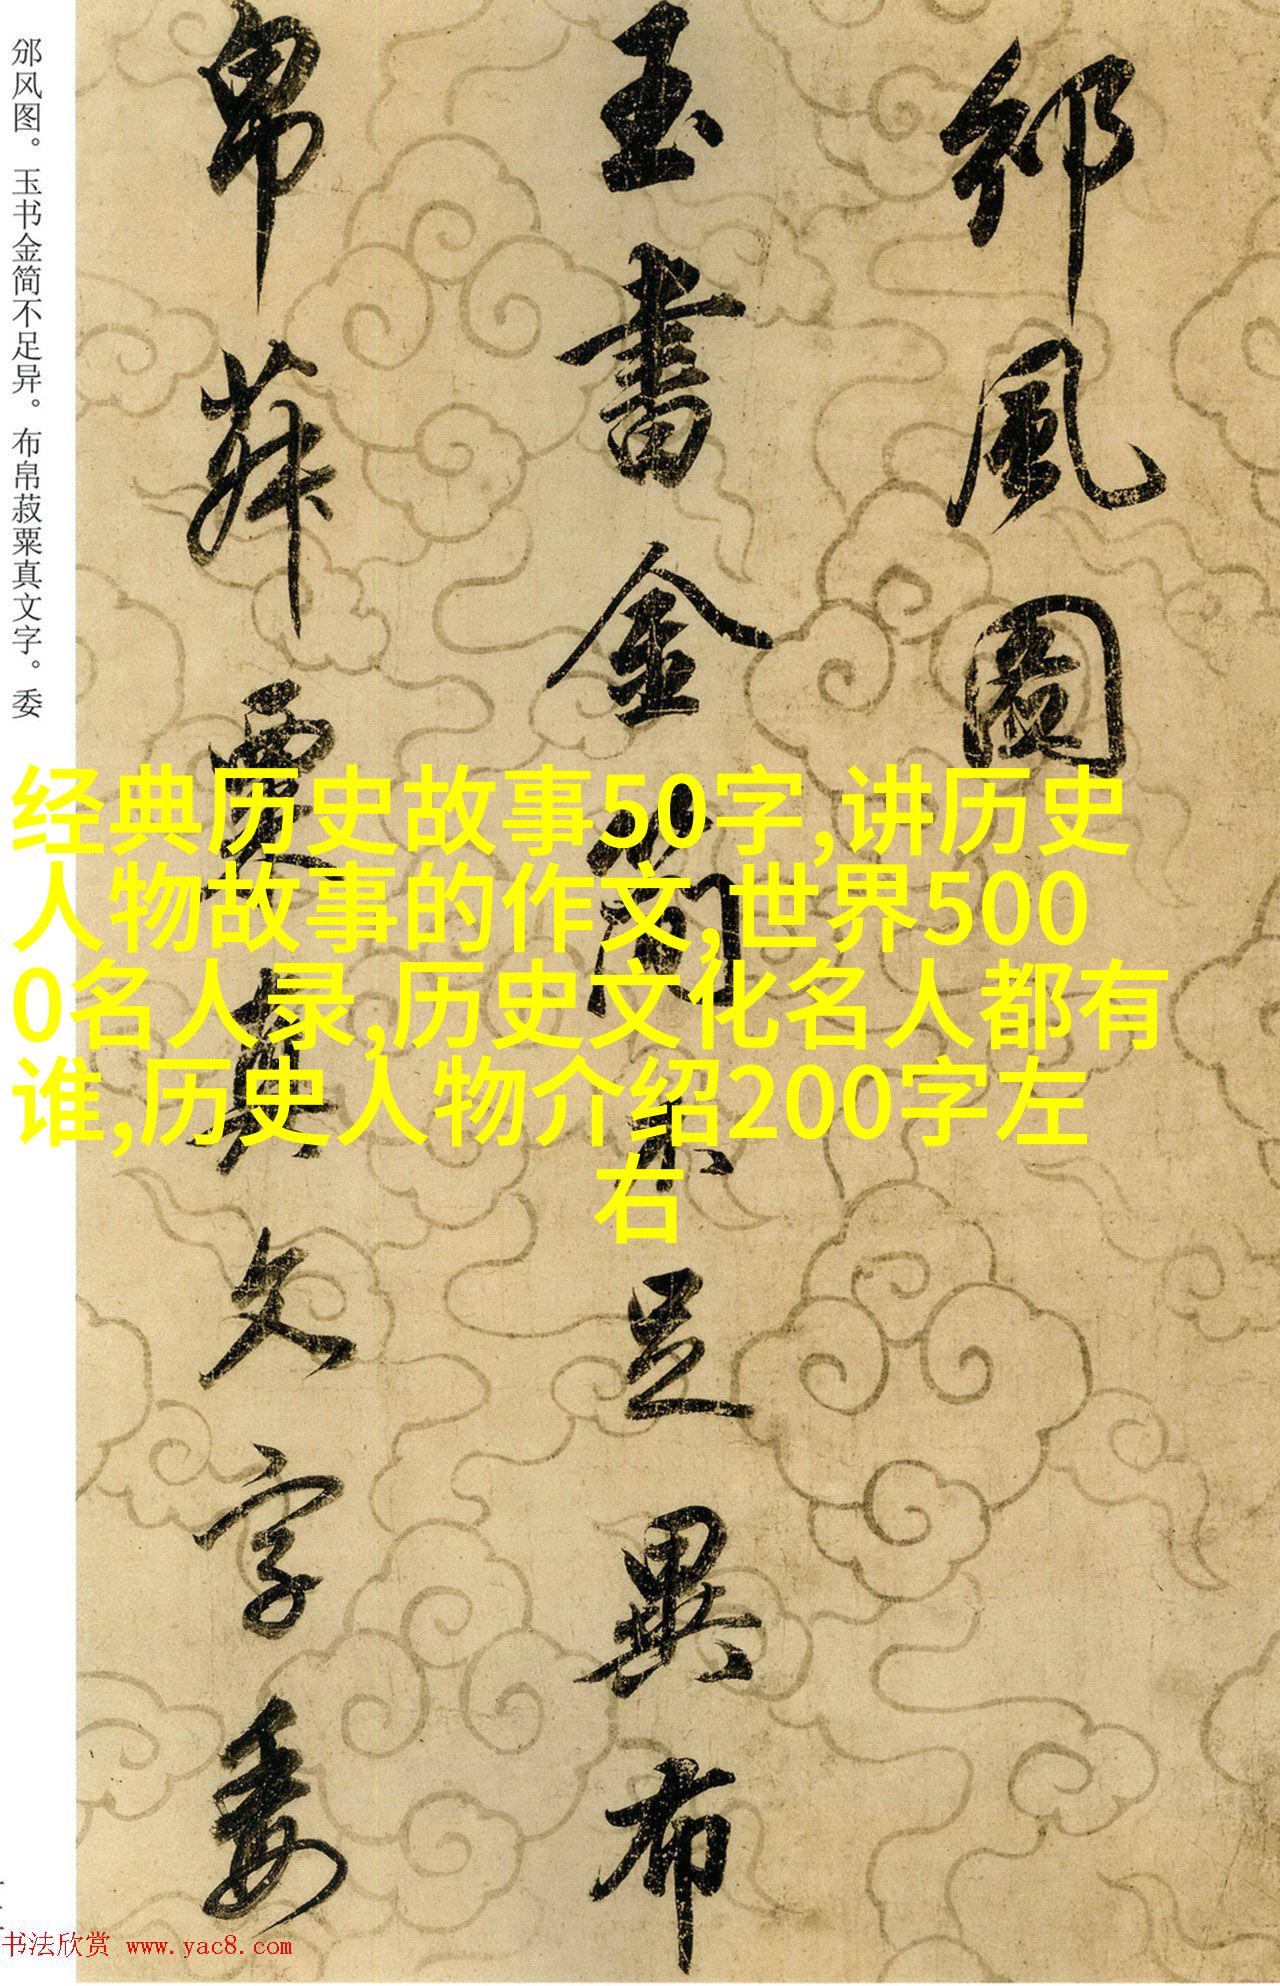 邠风图。玉书金简不足异。布帛菽粟真文字。委
邠風圖
玉書金簡不足異布
帛菽粟真文字委
经典历史故事50字,讲历史
人物故事的作文,世界500
0名人录,历史文化名人都有
谁,历史人物介绍200字左
右
书法欣赏 www.yac8.com